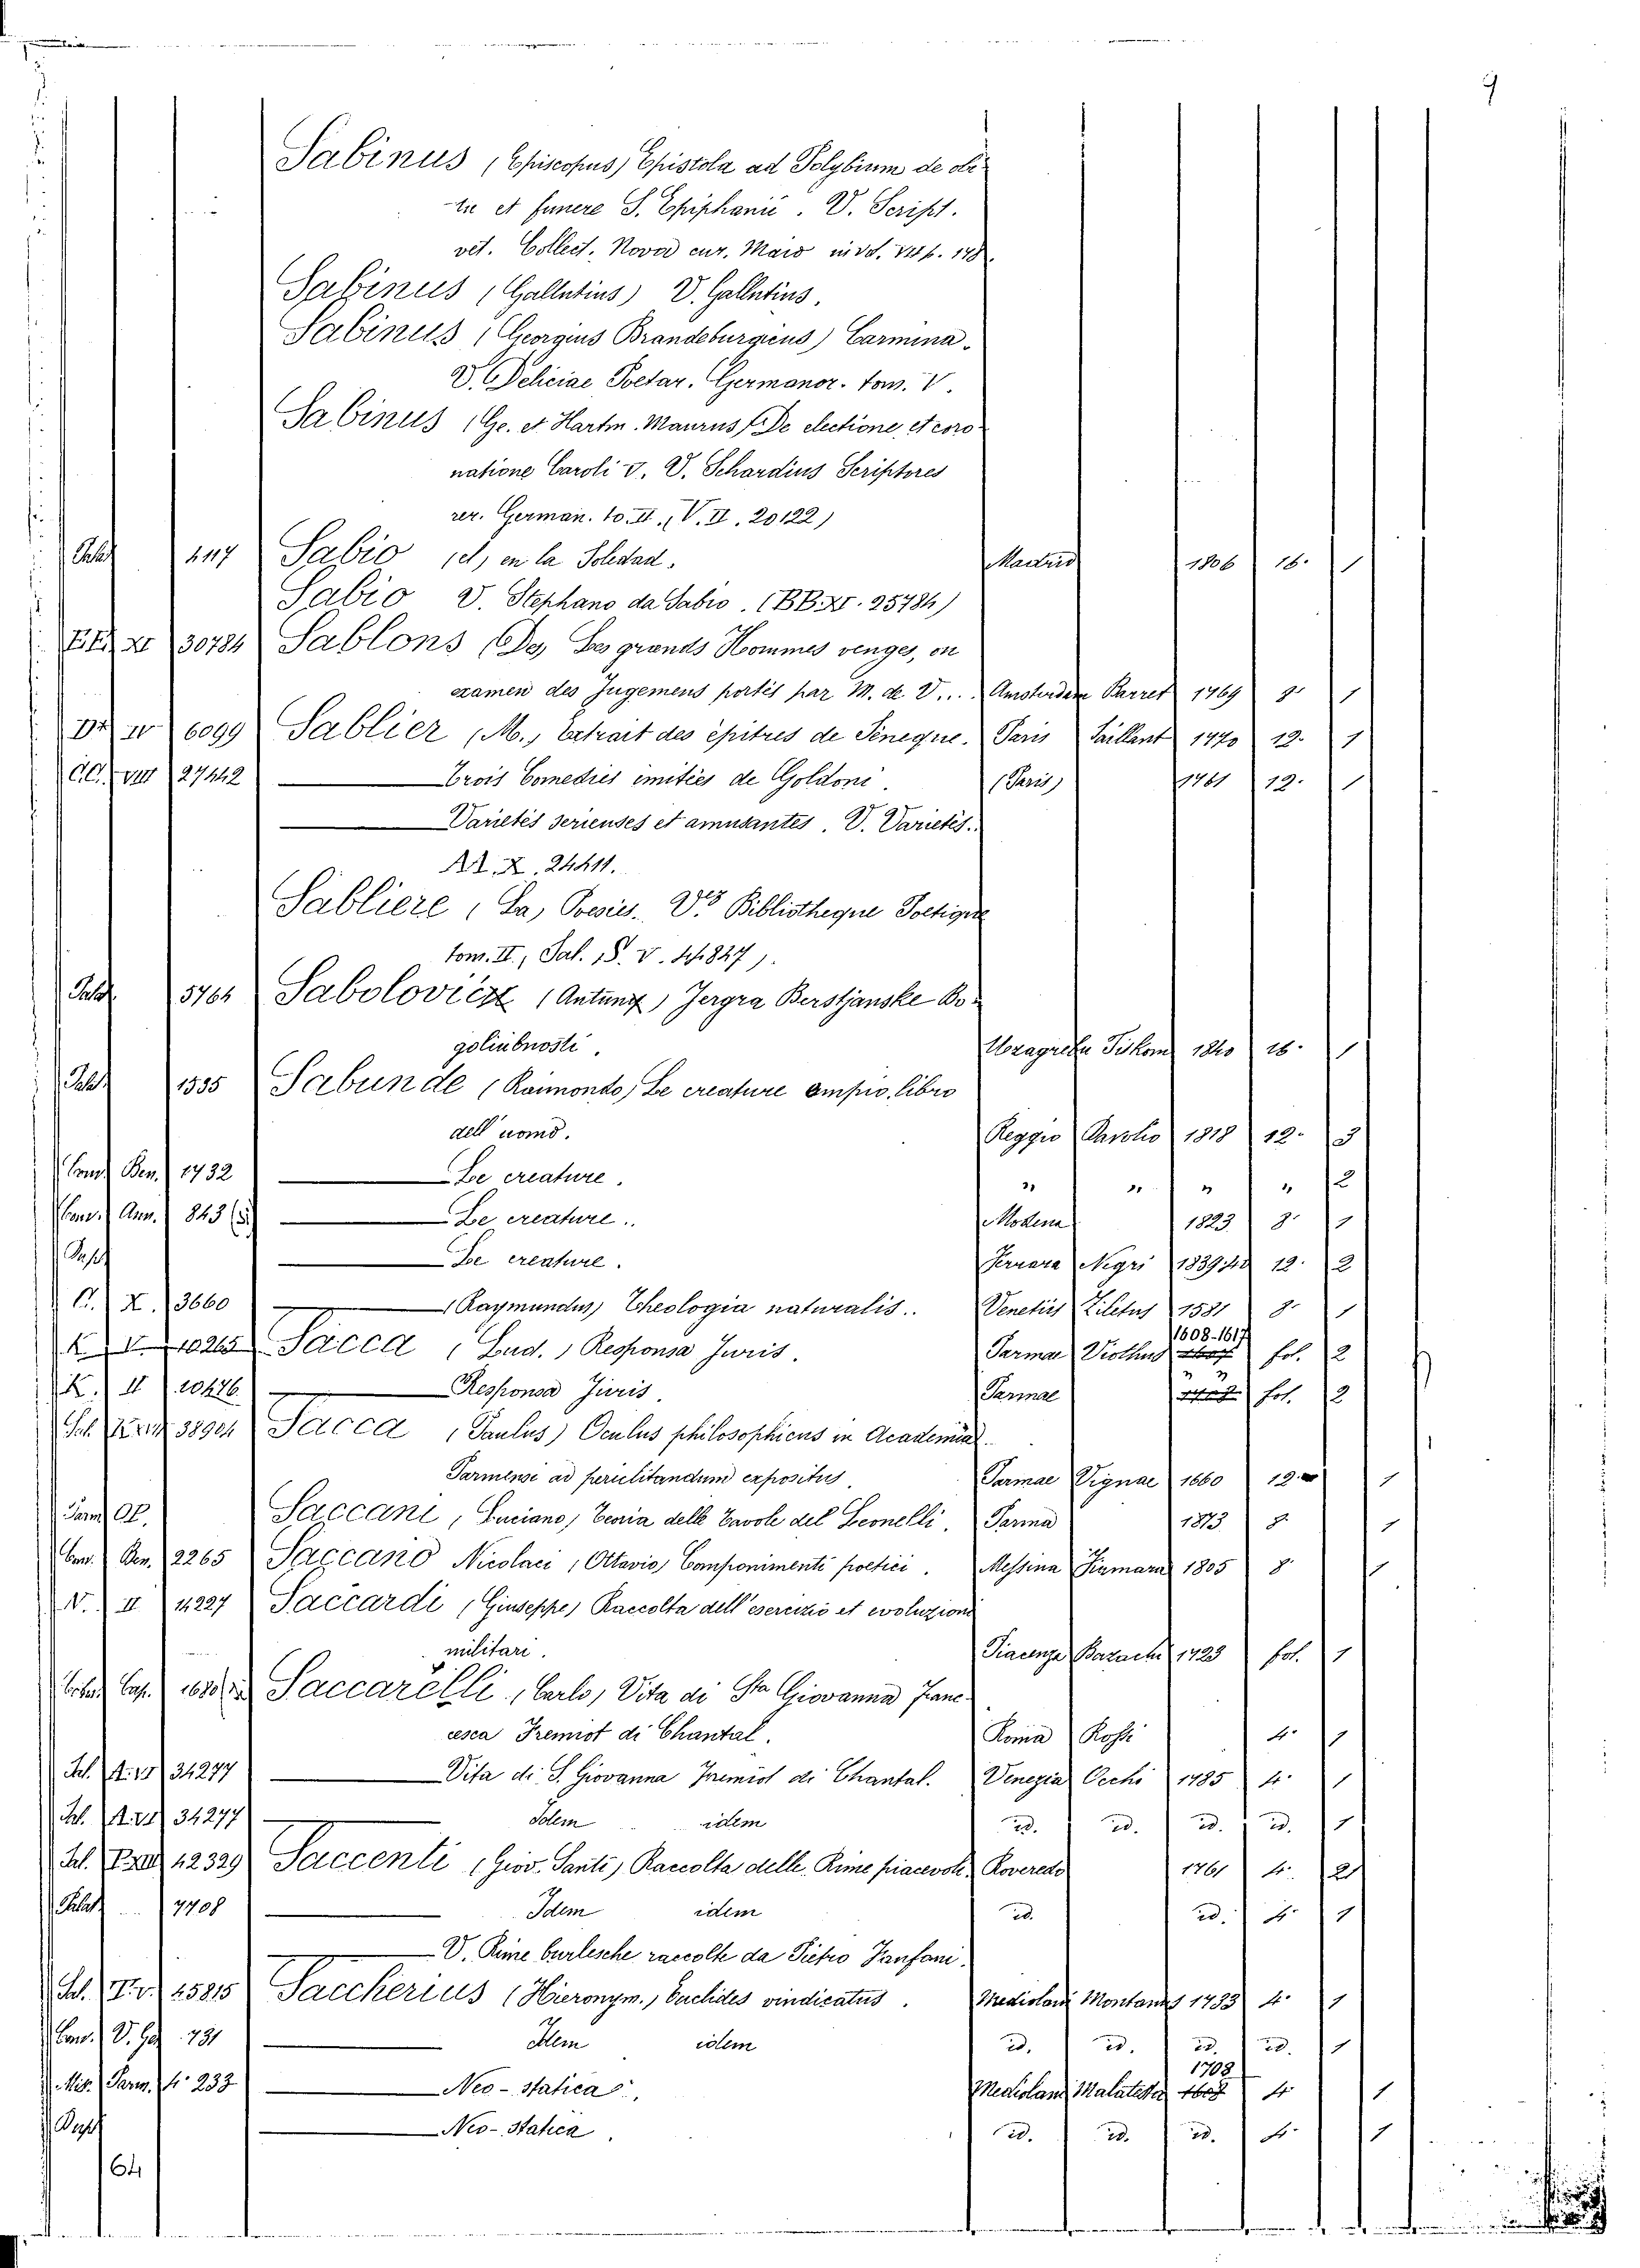 Sabinus (Episcopus) Epistola ad Polybium de obi-
tu et funere S. Epiphanii. V. Script.
vet. Collect. Nova cur. Maio in vol. VII p. 178.
Sabinus (Gallutius) V. Gallutius.
Sabinus (Georgius Brandeburgicus) Carmina.
V. Deliciae Poetar. Germanor. tom. V.
Sabinus (Ge. et Hartm. Maurus) De electione, et coro-
natione Caroli V. V. Schardius Scriptores
rer. German. to. II. (V. II. 20122)
Palat 4117 Sabio (el) en la Soledad. Madrid 1806 16. 1
Sabio V. Stephano da Sabio. (BB. XI. 25784)
XI 30784 Sablons (De) Les grands Hommes vengés, ou
examen des Jugemens portés par M. de V... Amsterdam Barret 1769 8. 1
IV 6099 Sablier (M.) Extrait des épitres de Séneque. Paris Saillant 1770 12. 1
CC. VIII 27442 Trois Comedies imitées de Goldoni. (Paris) 1761 12. 1
Varietés serieuses et amusantes. V. Varietés.
AA. X. 24411.
Sabliere (La) Poesies. V. Bibliotheque Poetique
tom. II, Sal. (S. V. 4827).
Palat. 5764 Sabolovich (Antun) Jergra Berstjanske Bo-
goliubnosti. Uzagrebu Tiskom 1840 16. 1
Palat 1535 Sabunde (Raimondo) Le creature ampio libro
dell' uomo. Reggio Davolio 1818 12. 3
Cond. Ben. 1732 Le creature. " " " " 2
Conv. Ann. 843 (5) Le creature. Modena 1823 8. 1
Le creature. Ferrara Negri 1839-40 12. 2
C. X. 3660 (Raymundus) Theologia naturalis. Venetiis Ziletus 1581 8. 1
K. V. 10265 Sacca (Lud.) Responsa Juris. Parmae Viothus 1608-1617 fol. 2
K. II 10476 Responsa Juris Parmae " " fol. 2
38904 Sacca (Paulus) Oculus philosophicus in Academia
Parmensi ad periclitandum expositus. Parmae Vignae 1660 12. 1
Parm Op. Saccani (Luciano) Teoria delle Tavole del Leonelli. Parma 1873 8. 1
Con. Ben. 2265 Saccano Nicolaci (Ottavio) Componimenti poetici. Messina Fiumara 1805 8. 1
N. II 4227 Saccardi (Giuseppe) Raccolta dell' esercizio et evoluzioni
militari. Piacenza Bazachi 1723 fol. 1
Saccarelli (Carlo) Vita di Sta Giovanna Fran-
cesca Fremiot di Chantal. Roma Rossi 4. 1
34277 Vita di S. Giovanna Fremiot di Chantal. Venezia Occhi 1785 4. 1
34277 Idem idem id. id. id. id. 1
42329 Saccenti (Giov. Santi) Raccolta delle Rime piacevoli. Rovereto 1761 4. 2
Palat 7708 Idem idem id. id. 4. 1
V. Rime burlesche raccolte da Pietro Fanfani.
45815 Saccherius (Hieronym.) Euclides vindicatus. Mediolani Montanus 1733 4. 1
Conv. V. 731 Idem idem id. id. id. id. 1
Mis. Parm. 4. 233 Neo-statica. Mediolani Malatesta 1708 4. 1
Neo-statica. id. id. id. 4. 1
64